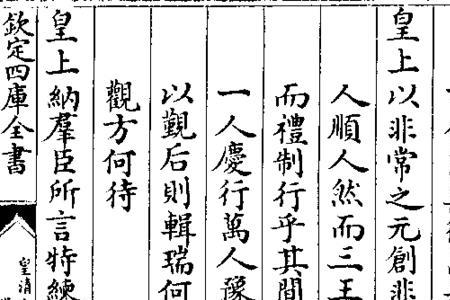 皇上以非常之元創非
人順人然而三王
而禮制行乎其間
一人慶行萬人豫
以覲后則輯瑞何
觀方何待
皇上納羣臣所言特練
欽定四庫全書
皇清